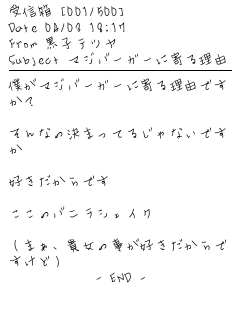 受信箱 [001/500]
Date 04/03 18:17
From 黒子テツヤ
Subject マジバーガーに寄る理由
僕がマジバーガーに寄る理由です
か?
そんなの決まってるじゃないです
か
好きだからです
ここのバニラシェイク
(まぁ、貴女の事が好きだからで
すけど)
- END -